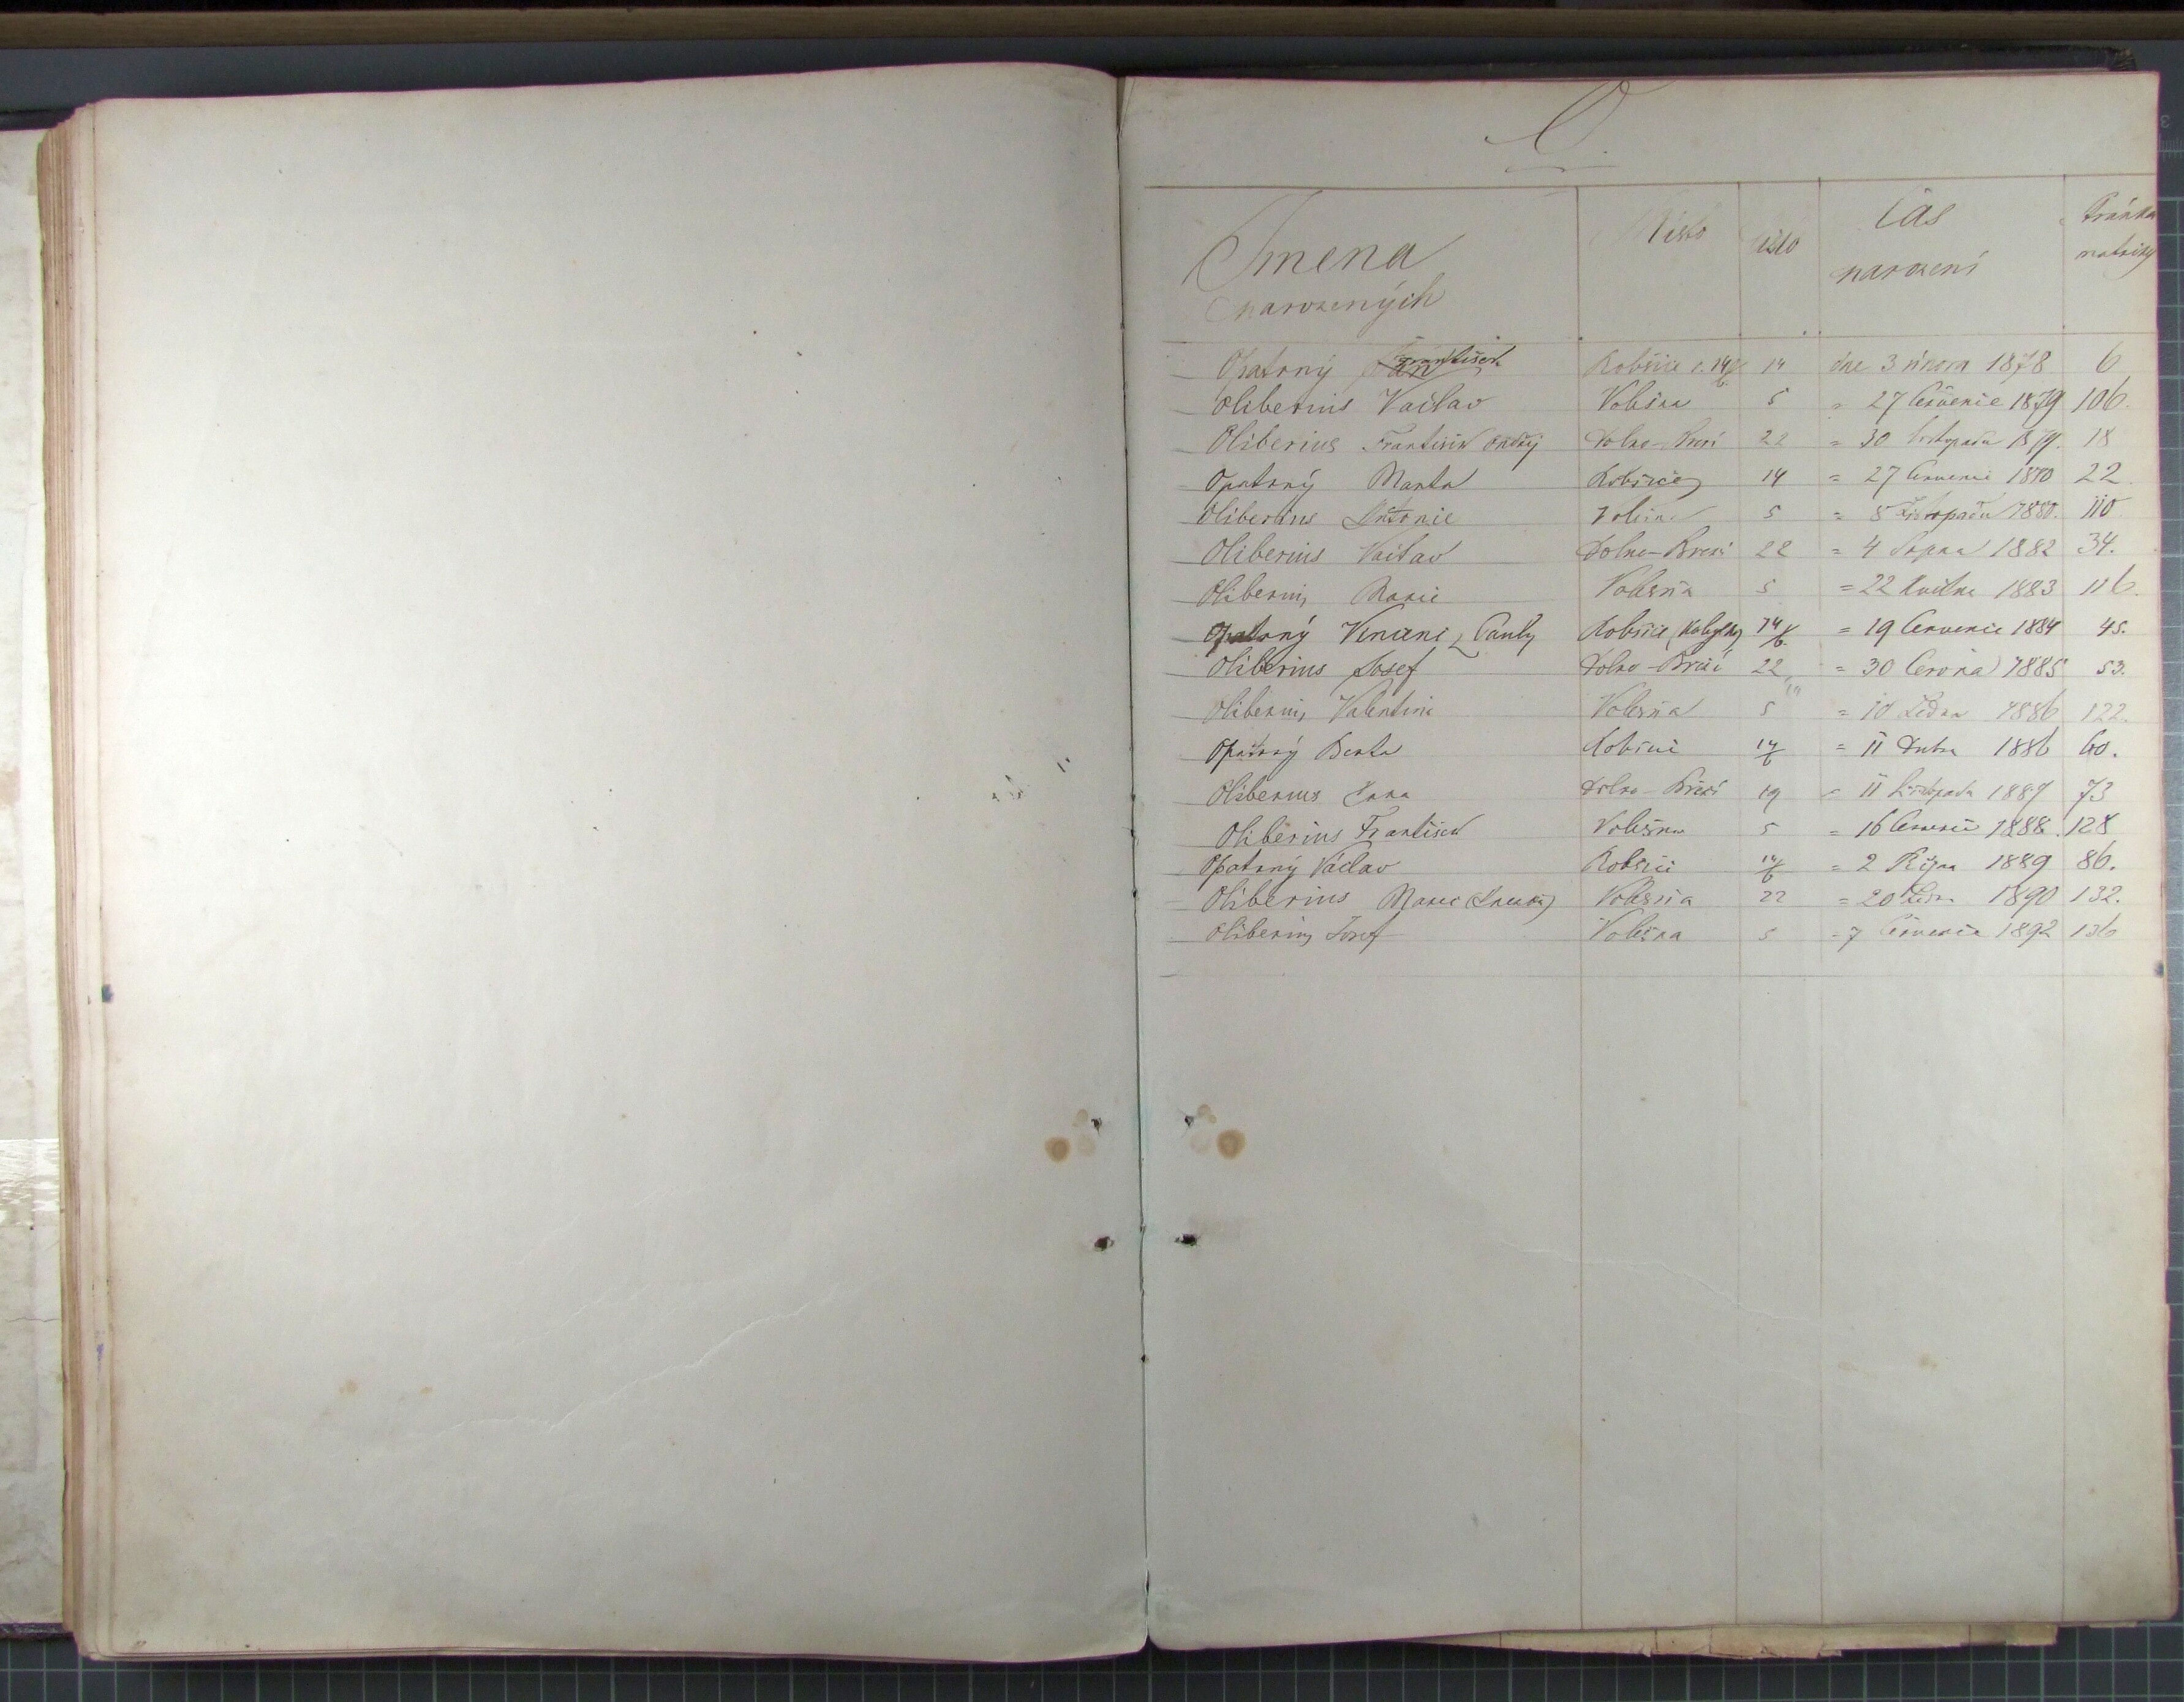 O.
Jmena narozených Místo číslo čas narození Stránka matriky
Opatrný František Robšice č. 14/6 14 dne 3 února 1878 6
Oliberius Václav Volešna 5 " 27 Července 1879 106.
Oliberius František Ondřej Dolno-Brezí 22 = 30 listopadu 1879. 18
Opatrný Marta Robsice 14 = 27 Července 1880 22
Oliberius Antonie Volešna 5 = 8 Listopadu 1880. 110
Oliberius Vaclav Dolno-Brezi 22 = 4 Srpna 1882 34.
Oliberius Marie Volesňa 5 = 22 Května 1883 116.
Opatrný Vincenc, Pauly Robšice (Kobylky) 14/6. = 19 Července 1884 45.
Oliberius Josef Dolno-Březí 22 = 30 Června 1885 53.
Oliberius Valentin Volesňa 5 = 10 Ledna 1886 122.
Opatrný Berta Robšice 14/6 = 11 Dubna 1886 60.
Oliberius Anna Dolno-Březí 19 = 11 Listopadu 1887 73
Oliberius František Volešna 5 = 16 Července 1888. 128
Opatrný Václav Robšice 14/6 = 2 Října 1889 86.
Oliberius Marie Volesňa 22 = 20 Ledna 1890 132.
Oliberius Josef Volešna 5 = 7 Července 1892 136